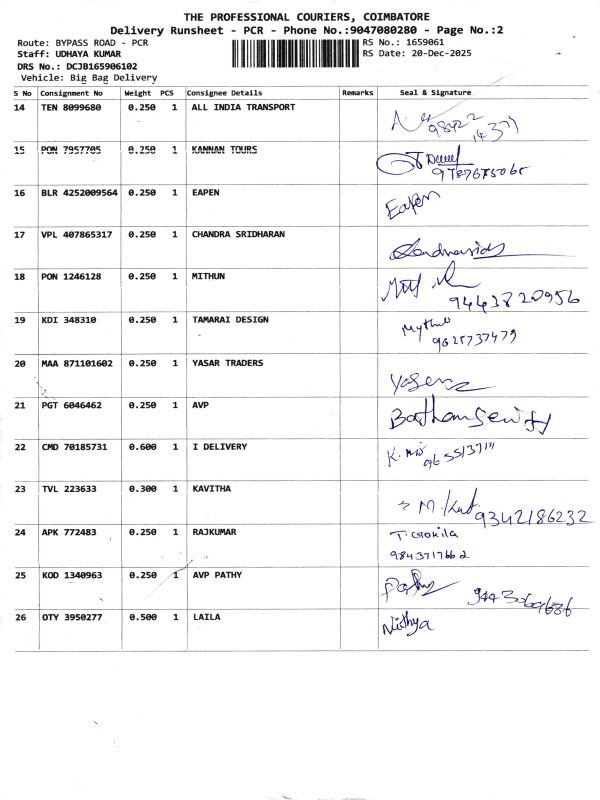 THE PROFESSIONAL COURIERS, COIMBATORE
Delivery Runsheet - PCR - Phone No.:9047080280 - Page No.:2
Route: BYPASS ROAD - PCR
RS No.: 1659061
Staff: UDHAYA KUMAR
RS Date: 20-Dec-2025
DRS No.: DCJB165906102
Vehicle: Big Bag Delivery
S No Consignment No Weight PCS Consignee Details Remarks Seal & Signature
14 TEN 8099680 0.250 1 ALL INDIA TRANSPORT
15 PON 7957705 0.250 1 KANNAN TOURS
16 BLR 4252009564 0.250 1 EAPEN Eapen
17 VPL 407865317 0.250 1 CHANDRA SRIDHARAN
18 PON 1246128 0.250 1 MITHUN
9443820956
19 KDI 348310 0.250 1 TAMARAI DESIGN
9625737479
20 MAA 871101602 0.250 1 YASAR TRADERS
21 PGT 6046462 0.250 1 AVP
22 CMD 70185731 0.600 1 I DELIVERY
23 TVL 223633 0.300 1 KAVITHA
9342186232
24 APK 772483 0.250 1 RAJKUMAR
9843717662
25 KOD 1340963 0.250 1 AVP PATHY Pathy
26 OTY 3950277 0.500 1 LAILA Nithya